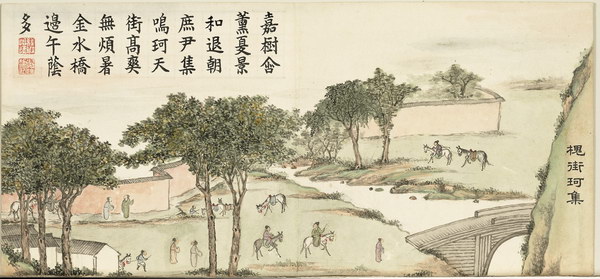 槐街珂集
嘉樹含
薰夏景
和退朝
庶尹集
鳴珂天
街高爽
無煩暑
金水橋
邊午蔭
多